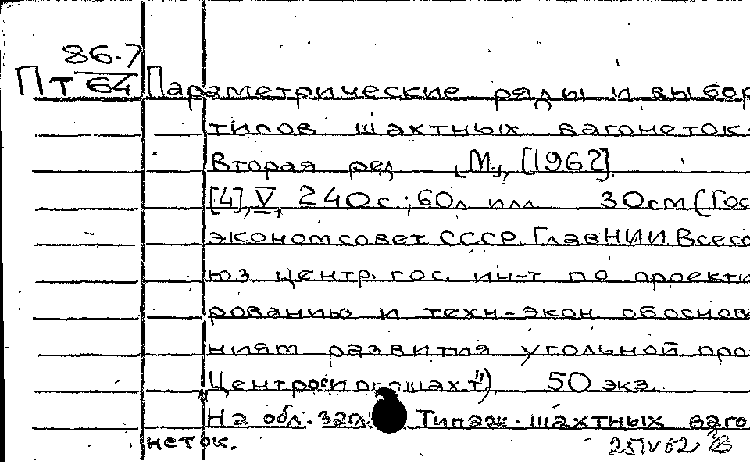 86-7
Пт 64 Параметрические ряды и выбор
типов шахтных вагонеток
Вторая ред „М„, [1962]
[4], V, 240с.; 60л илл 30см (Гос
экономсовет СССР. ГлавНИИ Всесо
юз центр. гос. ин-т по проекти
рованию и техн-экон обоснов
ниям развития угольной про
50 экз.
На обл. загл. Типаж шахтных ваго
неток.